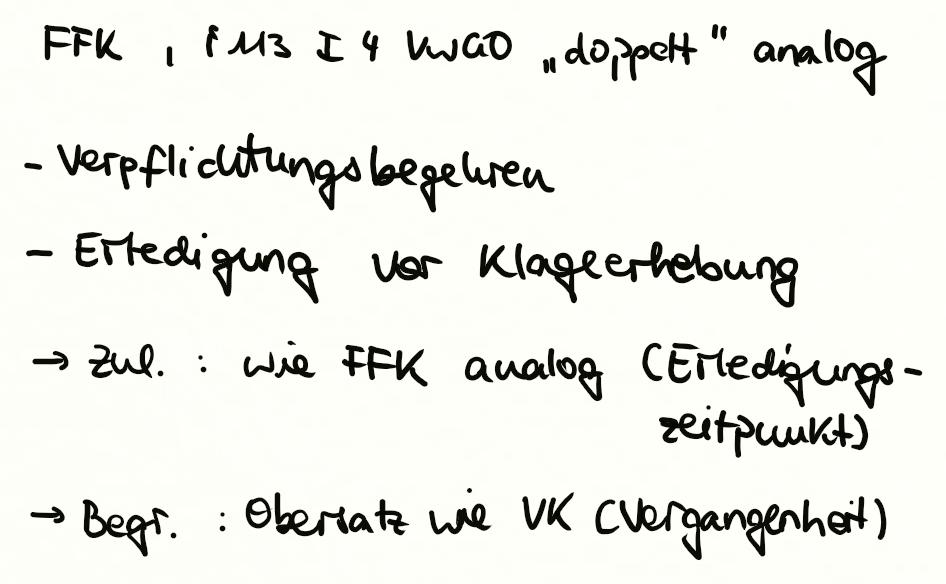 FFK, § 113 I 4 VwGO „doppelt" analog
- Verpflichtungsbegehren
- Erledigung vor Klageerhebung
→ Zul. : wie FFK analog (Erledigungs-
zeitpunkt)
→ Begr. : Obersatz wie VK (Vergangenheit)